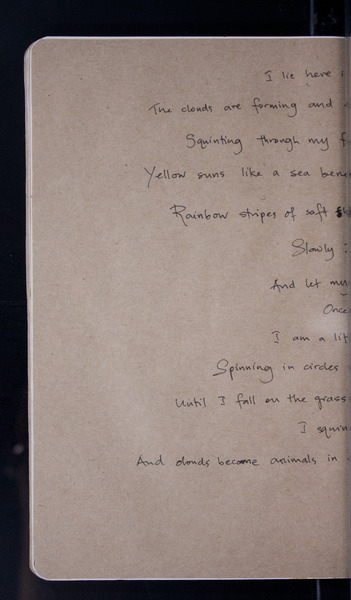 I lie here
The clouds are forming and
Squinting through my
Yellow suns like a sea
Rainbow stripes of soft
Slowly
And let my
Once
I am a
Spinning in circles
Until I fall on the grass
I
And clouds become animals in